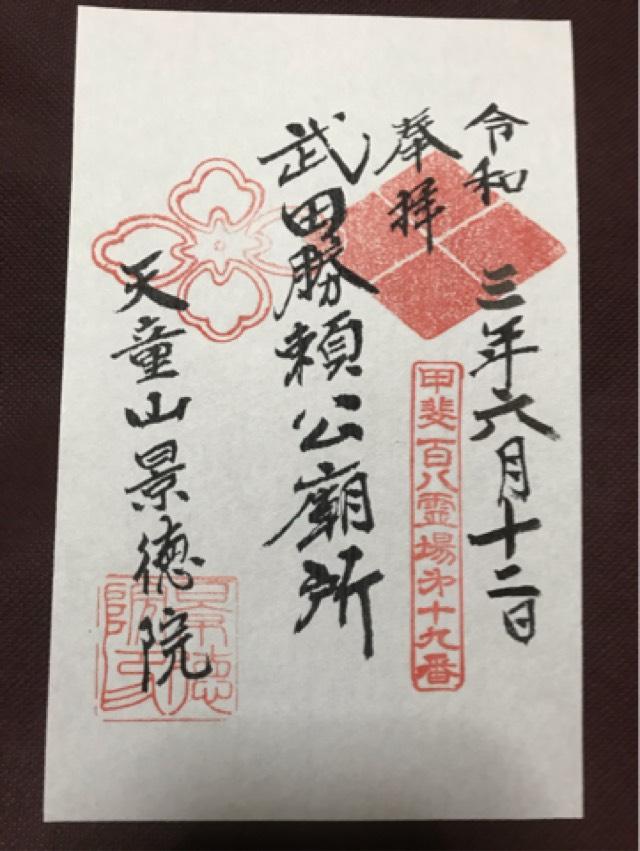 令和三年六月十二日
奉拝
甲斐百八霊場第十九番
武田勝頼公廟所
天童山景徳院
景徳院印